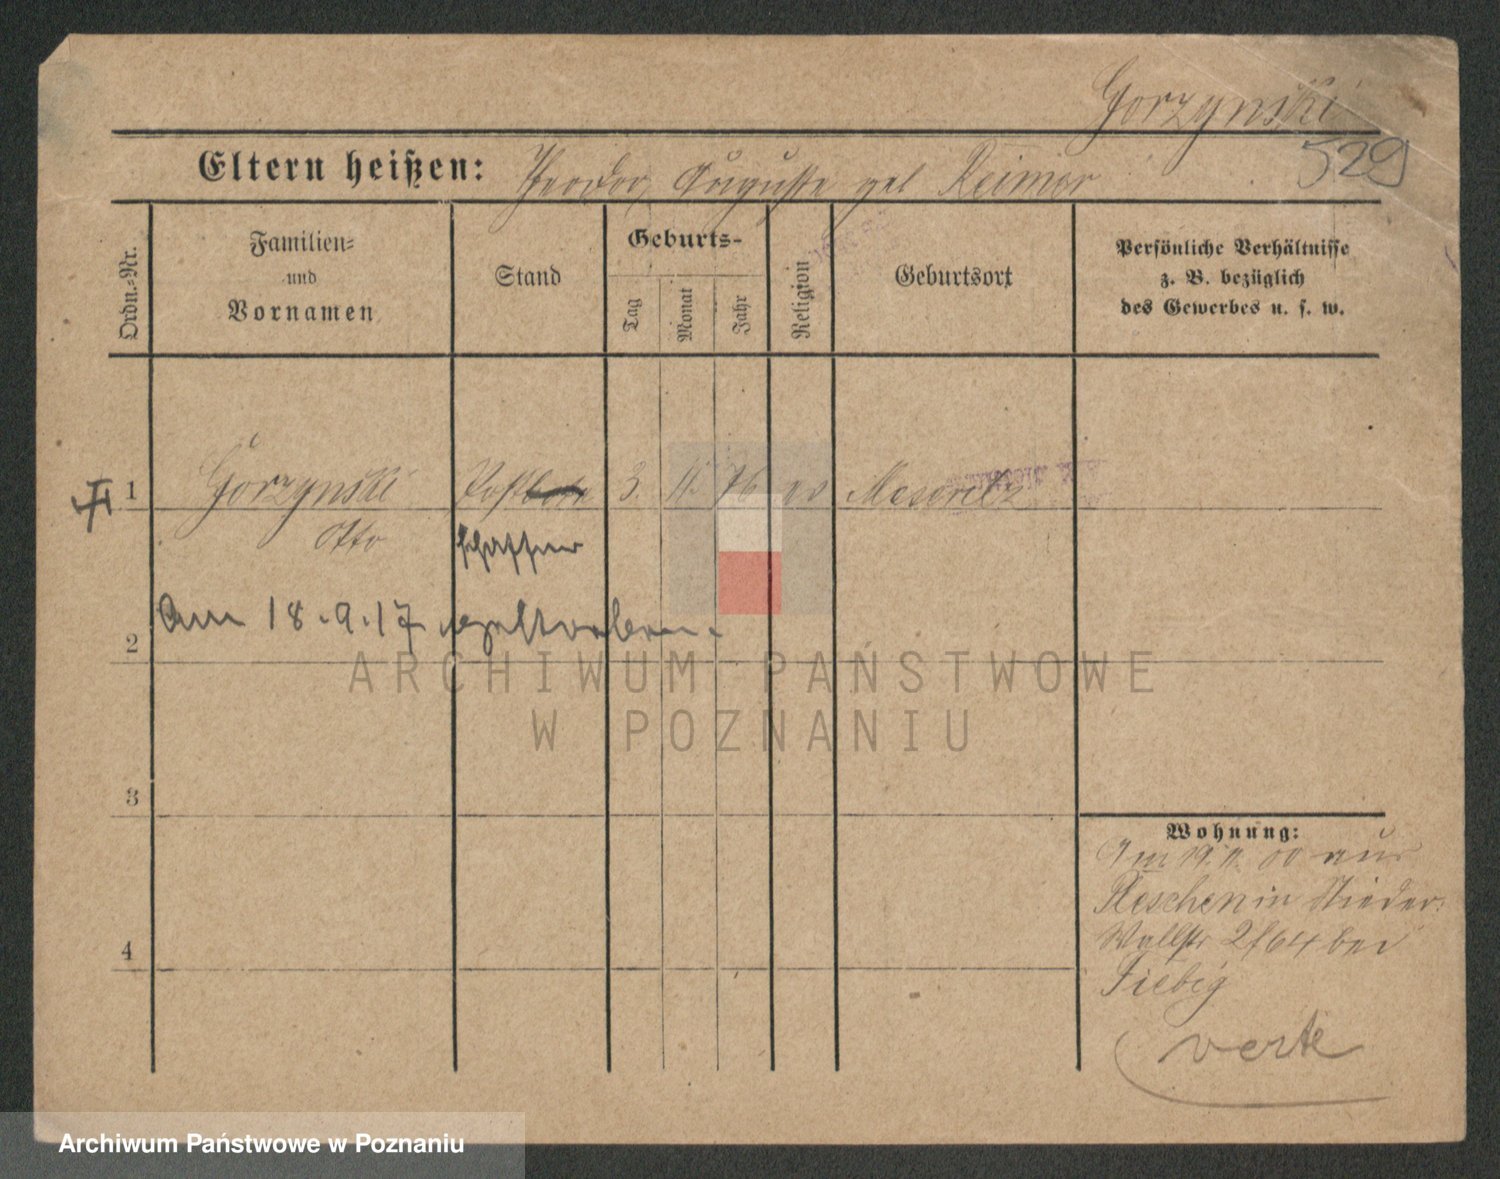 Gorzynski
529
Eltern heißen: Theodor, Auguste geb Reimer
Ordn.-Nr.
Familien-
und
Vornamen
Stand
Geburts-
Tag
Monat
Jahr
Religion
Geburtsort
Persönliche Verhältnisse
z. B. bezüglich
des Gewerbes u. s. w.
1 Gorzynski Postbote 3. 11. 76 ev Meseritz
Otto schaffner
Am 18.9.17 gestorben.
2
3
4
Wohnung:
Am 19. 11. 00 aus
Pleschen in Nieder-
Wallstr 2/64 bei
Fiebig
verte
ARCHIWUM PAŃSTWOWE
W POZNANIU
Archiwum Państwowe w Poznaniu